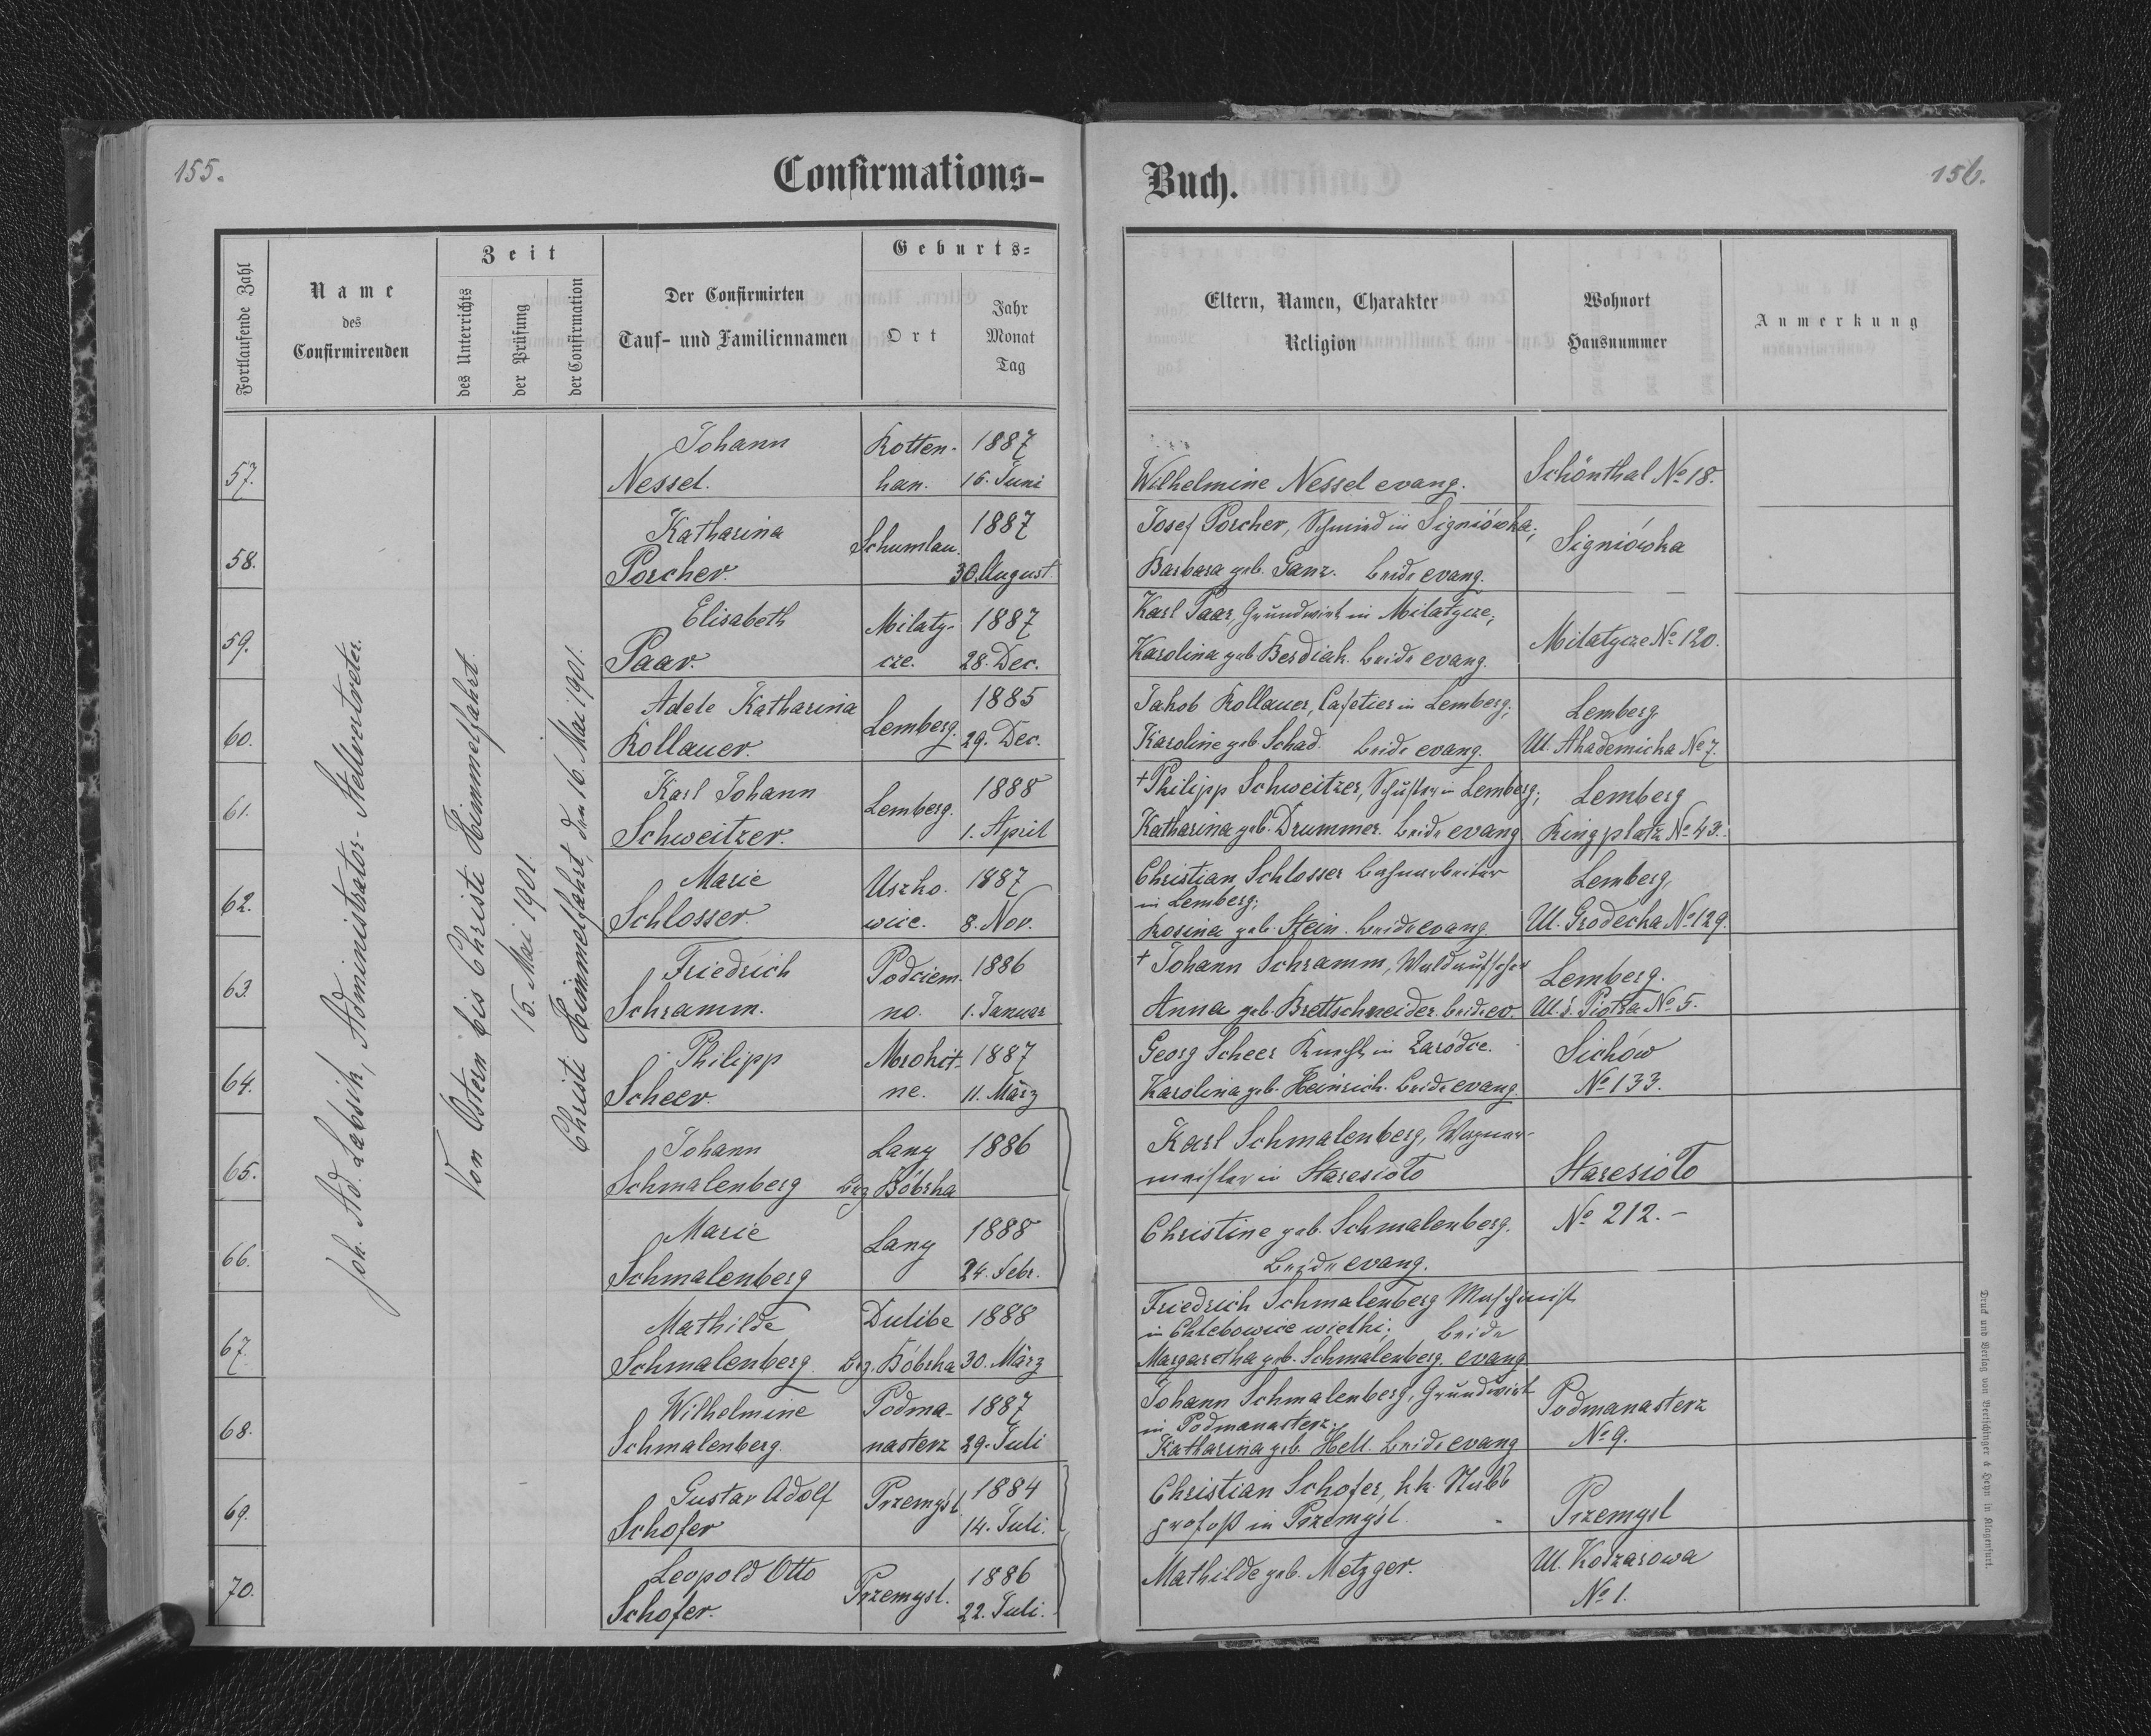 155.
Confirmations-
Fortlaufende Zahl
Name
des
Confirmirenden
Zeit
des Unterrichts
der Prüfung
der Confirmation
Der Confirmirten
Tauf- und Familiennamen
Geburts-
Ort
Jahr
Monat
Tag
Joh. Ad. Labsik, Administrator-Stellvertreter.
Von Ostern bis Christi Himmelfahrt.
15. Mai 1901.
Christi Himmelfahrt, den 16. Mai 1901.
57.
Johann
Nessel.
Rotten-
han.
1887
16. Juni
58.
Katharina
Porcher.
Schumlau.
1887
30. August.
59.
Elisabeth
Paar.
Milaty-
cze.
1887
28. Dec.
60.
Adele Katharina
Kollauer.
Lemberg.
1885
29. Dec.
61.
Karl Johann
Schweitzer.
Lemberg.
1888
1. April
62.
Marie
Schlosser.
Uszko-
wice.
1887
8. Nov.
63.
Friedrich
Schramm.
Podciem-
no.
1886
1. Januar
64.
Philipp
Scheer.
Mrokot-
ne.
1887
11. März
65.
Johann
Schmalenberg
Lany
Bez Bóbrka
1886
66.
Marie
Schmalenberg
Lany
1888
24. Febr.
67.
Mathilde
Schmalenberg.
Dulibe
Bez. Bóbrka
1888
30. März
68.
Wilhelmine
Schmalenberg.
Podma-
nasterz
1887
29. Juli
69.
Gustav Adolf
Schofer
Przemyśl
1884
14. Juli.
70.
Leopold Otto
Schofer.
Przemysl.
1886
22. Juli.
156.
Buch.
Eltern, Namen, Charakter
Religion
Wohnort
Hausnummer
Anmerkung
Wilhelmine Nessel evang.
Schönthal No 18.
Josef Porcher, Schmied in Signiówka;
Barbara geb. Ganz. beide evang.
Signiówka
Karl Paar, Grundwirt in Milatycze;
Karolina geb. Berdiak. beide evang.
Milatycze No 120.
Jakob Kollauer, Cafetier in Lemberg;
Karoline geb. Schad. beide evang.
Lemberg,
Ul. Akademicka No 7.
+ Philipp Schweitzer, Schuster in Lemberg;
Katharina geb. Drummer. beide evang
Lemberg
Ringplatz No 43.
Christian Schlosser Bahnarbeiter
in Lemberg;
Rosina geb. Stein. beide evang.
Lemberg,
Ul. Grodecka No 129.
+ Johann Schramm, Waldaufseher
Anna geb. Brettschneider. beide ev.
Lemberg.
Ul. ś. Piotra No 5.
Georg Scheer Knecht in Zaródce.
Karolina geb. Heinrich. beide evang.
Sichów
No 133.
Karl Schmalenberg, Wagner-
meister in Staresioło
Christine geb. Schmalenberg.
beide evang.
Staresioło
No 212. -
Friedrich Schmalenberg Maschinist
in Chlebowice wielki; beide
Margaretha geb. Schmalenberg. evang
Johann Schmalenberg, Grundwirt
in Podmanasterz.
Katharina geb. Hell. beide evang
Podmanasterz
No 9.
Christian Schofer, k.k. Stabs
profoß in Przemyśl.
Mathilde geb. Metzger.
Przemysl
Ul. Koszarowa
No 1.
Druck und Verlag von Bertschinger & Heyn in Klagenfurt.